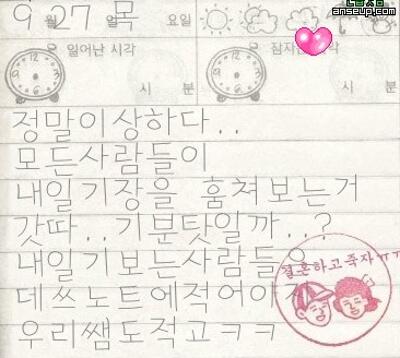 9월 27일 목 요일
anseup.com
일어난 시각
시 분
시 분
정말이상하다..
모든사람들이
내일기장을 훔쳐보는거
갓따..기분탓일까..?
내일기보는사람들은
데쓰노트에적어야지
우리쌤도적고ㅋㅋ
결혼하고죽자ㅠㅠ